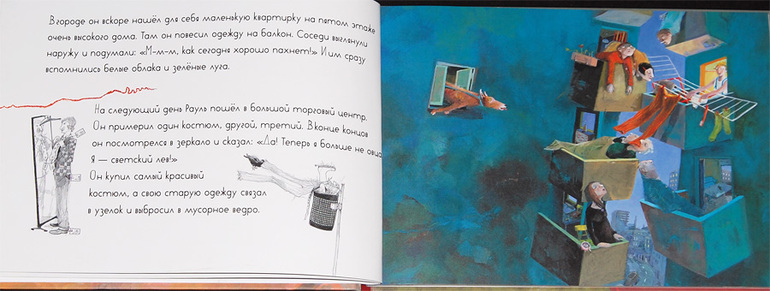 В городе он вскоре нашёл для себя маленькую квартирку на пятом этаже
очень высокого дома. Там он повесил одежду на балкон. Соседи выглянули
наружу и подумали: «М-м-м, как сегодня хорошо пахнет!» И им сразу
вспомнились белые облака и зелёные луга.
На следующий день Рауль пошёл в большой торговый центр.
Он примерил один костюм, другой, третий. В конце концов
он посмотрелся в зеркало и сказал: «Да! Теперь я больше не овца.
Я — светский лев!»
Он купил самый красивый
костюм, а свою старую одежду связал
в узелок и выбросил в мусорное ведро.